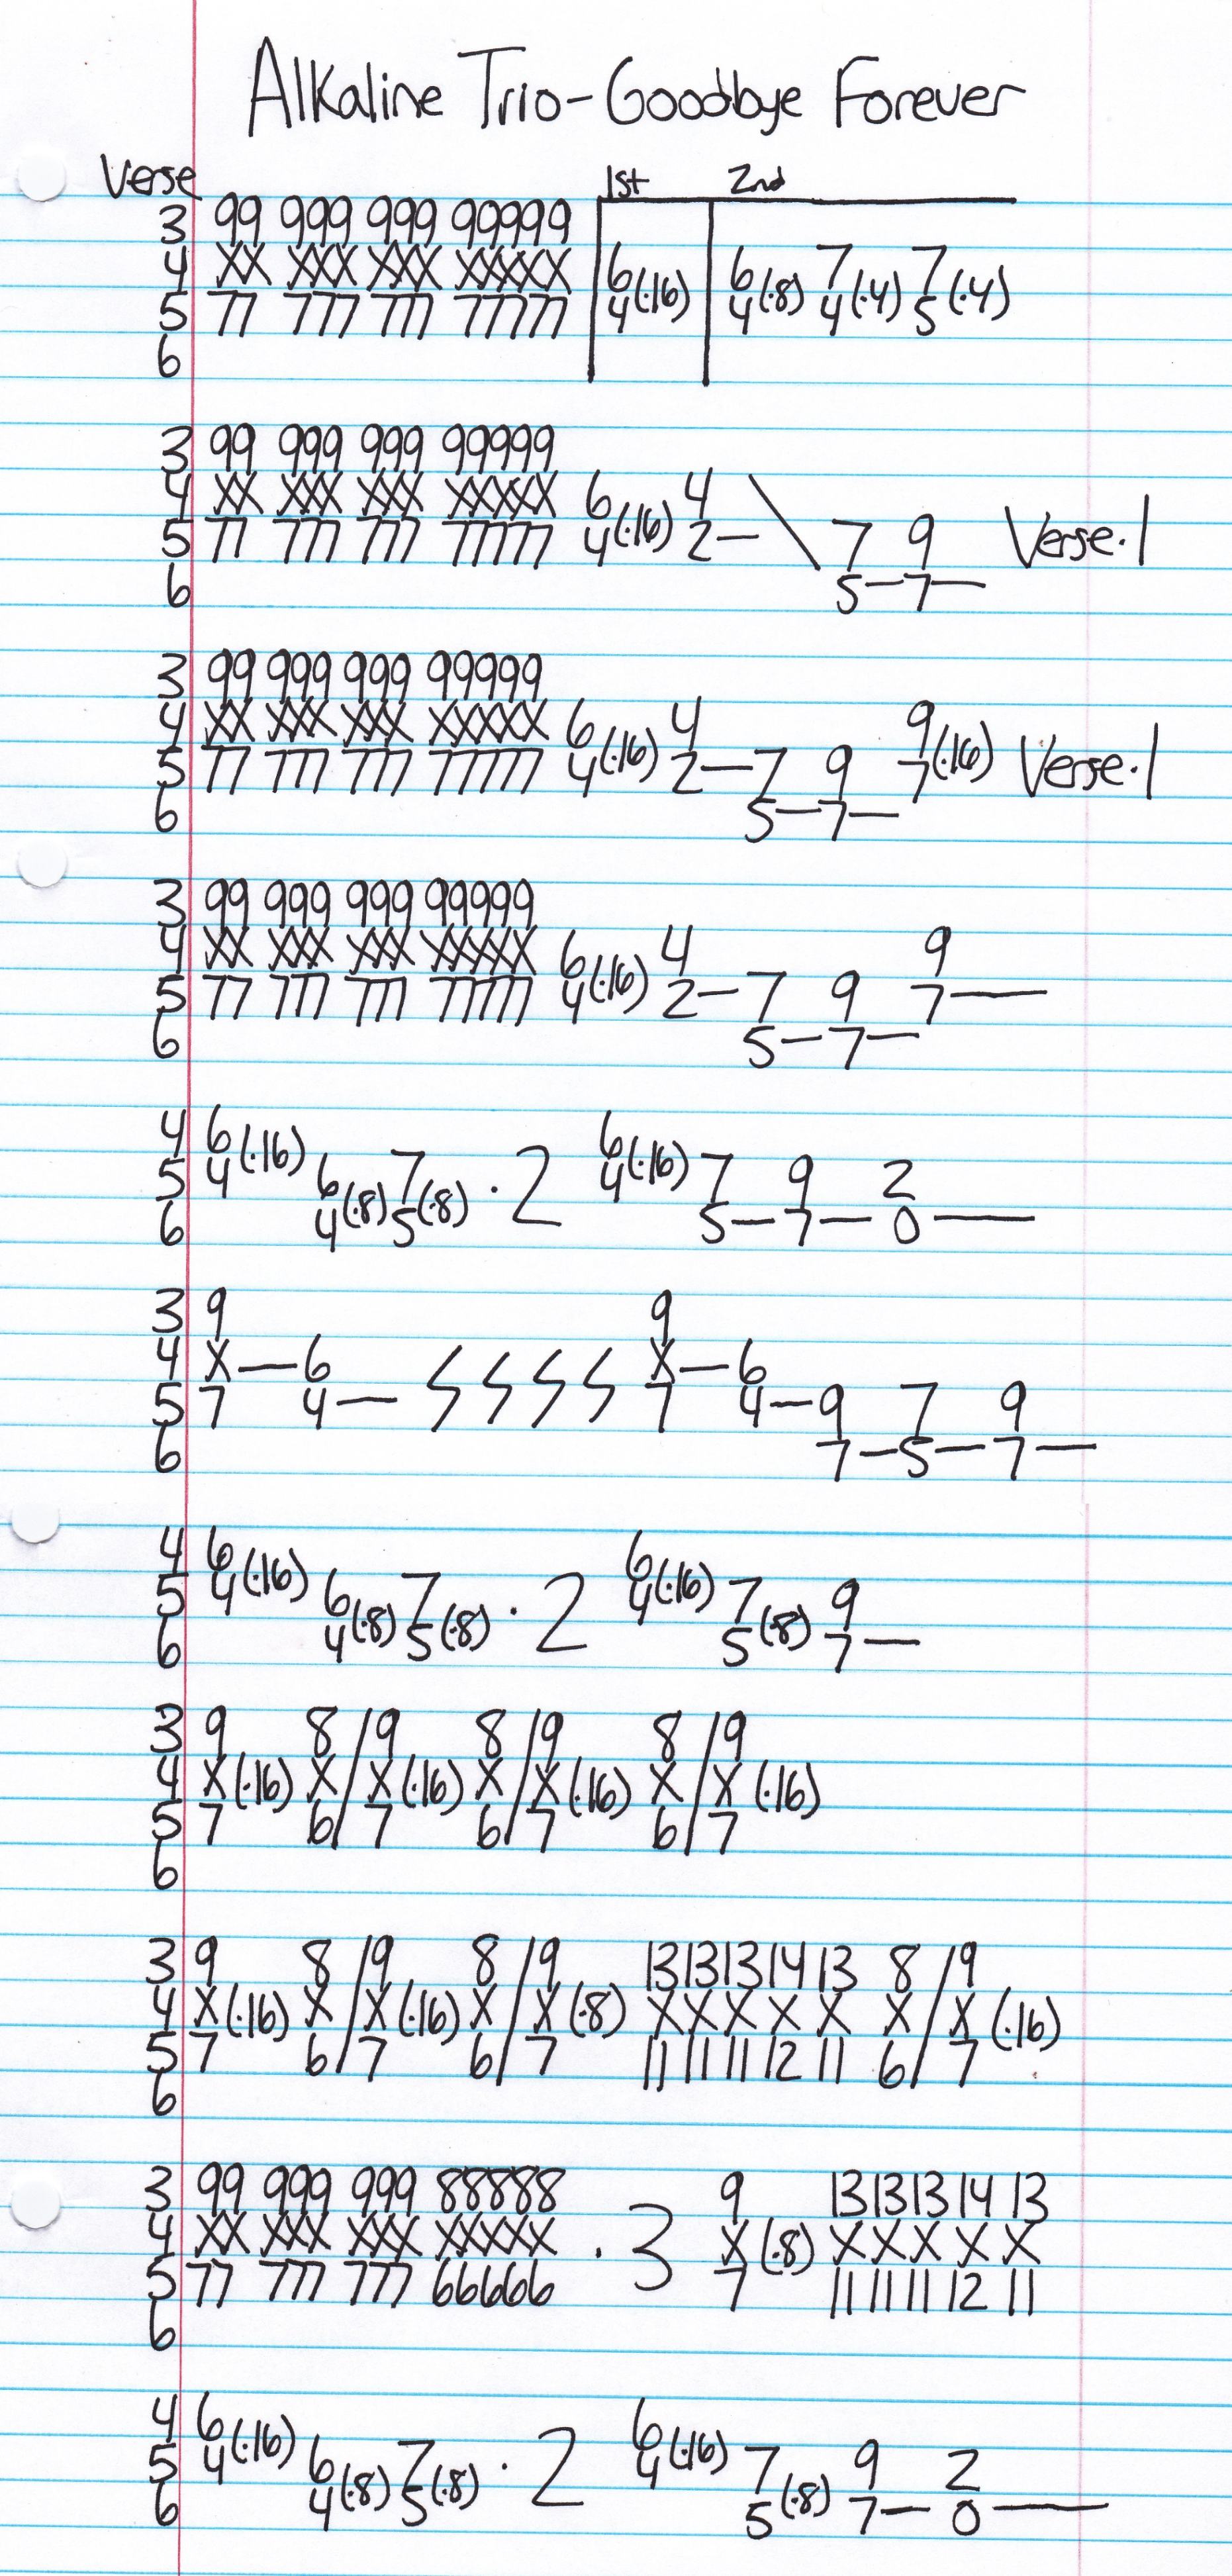 Alkaline Trio-Goodbye Forever
Verse 1st 2nd
3 99 999 999 99999
4 XX XXX XXX XXXXX 6(·16) 6(·8) 7(·4) 7(·4)
5 77 777 777 77777 4 4 4 5
6
3 99 999 999 99999
4 XX XXX XXX XXXXX 6(·16) 4 \
5 77 777 777 77777 4 2— 7 9 Verse·1
6 5—7—
3 99 999 999 99999
4 XX XXX XXX XXXXX 6(·16) 4 9(·16)
5 77 777 777 77777 4 2—7 9 7 Verse·1
6 5—7—
3 99 999 999 99999
4 XX XXX XXX XXXXX 6(·16) 4 9
5 77 777 777 77777 4 2—7 9 7—
6 5—7—
4 6(·16) 6(·16)
5 4 6(·8) 7(·8) ·2 4 7 9 2
6 4 5 5—7—0—
3 9 9
4 X—6 X—6
5 7 4— 7 4—9 7 9
6 7—5—7—
4 6(·16) 6(·16)
5 4 6(·8) 7(·8) ·2 4 7(·8) 9
6 4 5 5 7—
3 9 8/9 8/9 8/9
4 X(·16) X/X(·16) X/X(·16) X/X(·16)
5 7 6/7 6/7 6/7
6
3 9 8/9 8/9 13 13 13 14 13 8/9
4 X(·16) X/X(·16) X/X(·8) X X X X X X/X(·16)
5 7 6/7 6/7 11 11 11 12 11 6/7
6
3 99 999 999 88888 9 13 13 13 14 13
4 XX XXX XXX XXXXX ·3 X(·8) X X X X X
5 77 777 777 66666 7 11 11 11 12 11
6
4 6(·16) 6(·16)
5 4 6(·8) 7(·8) ·2 4 7(·8) 9 2
6 4 5 5 7—0—